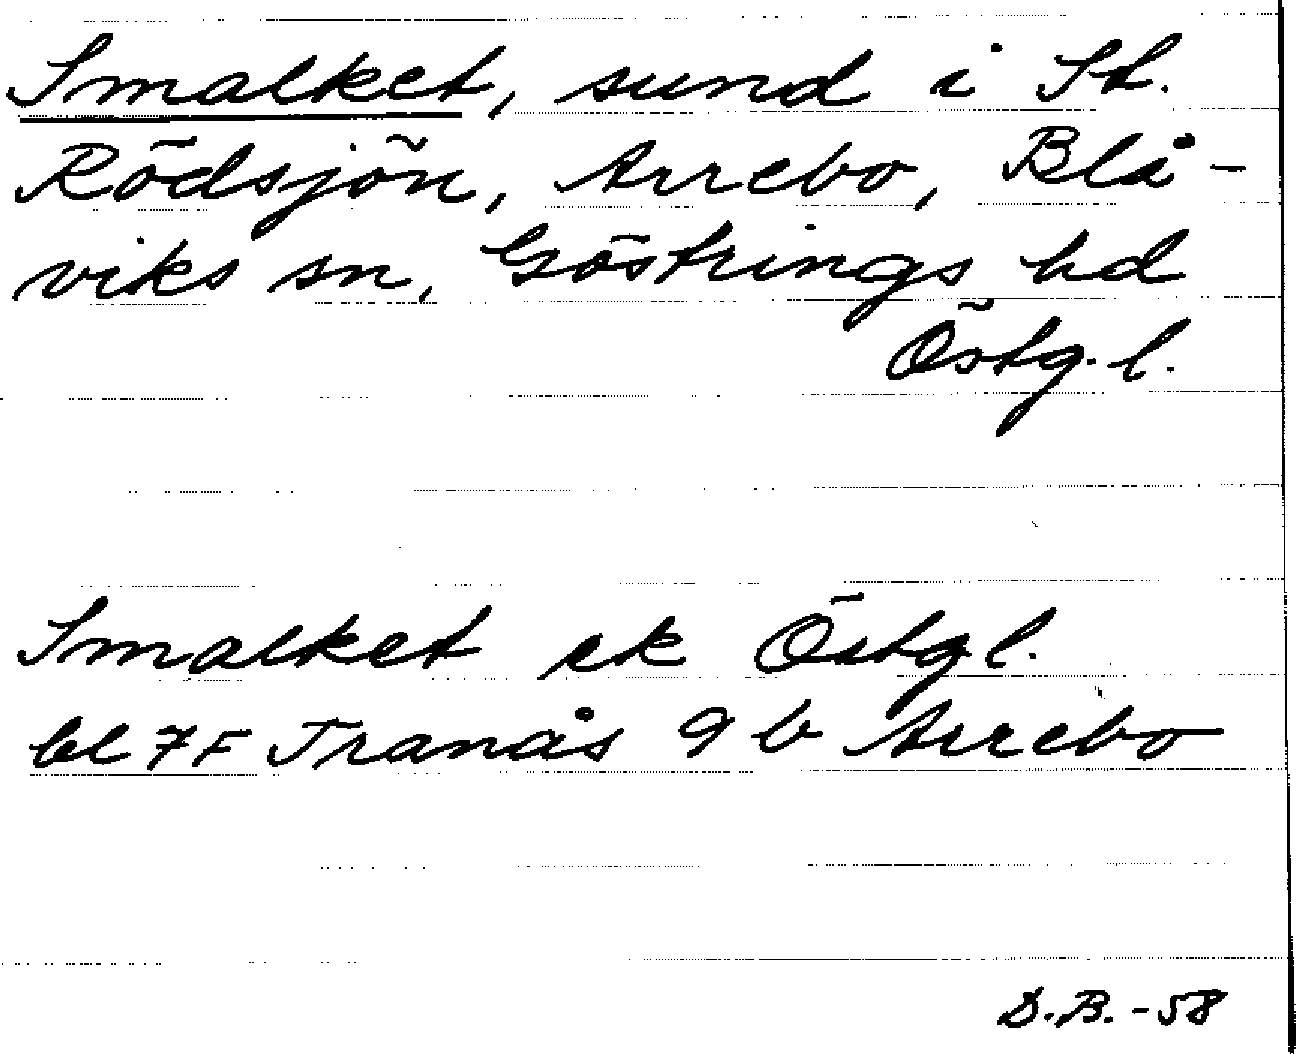 Smalket, sund i St.
Rödsjön, Arrebo, Blå-
viks sn, Göstrings hd
Östg. l.
Smalket ek Östgl.
bl 7F Tranås 9 b Arrebo
D.B. -58